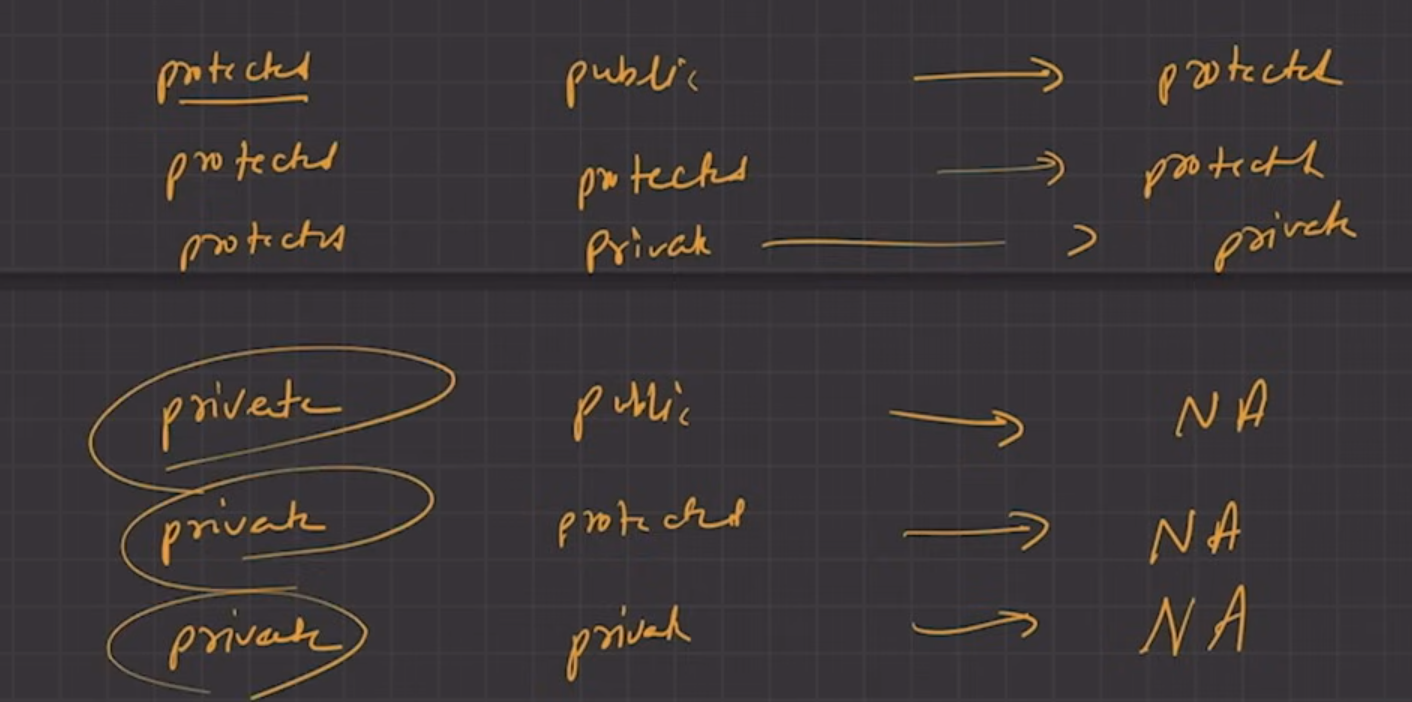 protected public → protected
protected protected → protected
protected private → private
private public → NA
private protected → NA
private private → NA